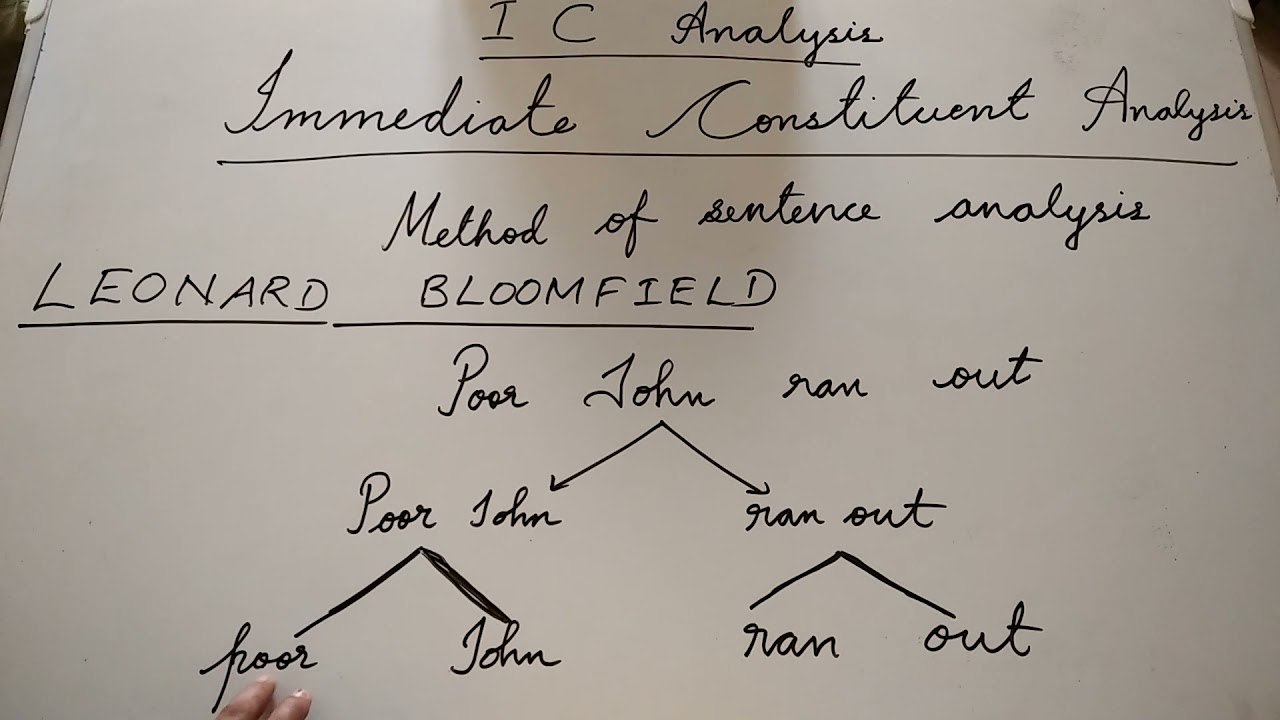 I C Analysis
Immediate Constituent Analysis
Method of sentence analysis
LEONARD BLOOMFIELD
Poor John ran out
Poor John ran out
poor John ran out